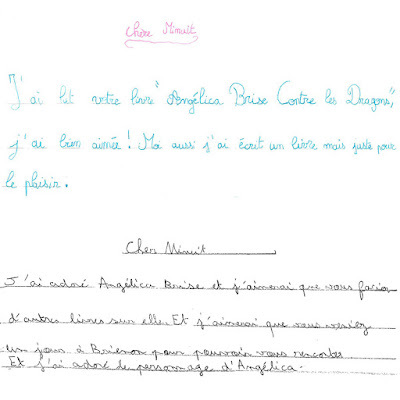 Chère Minuit
J'ai lut votre livre "Angélica Brise Contre les Dragons",
j'ai bien aimée! Moi aussi j'ai écrit un livre mais juste pour
le plaisir.
Cher Minuit
J'ai adoré Angélica Brise et j'aimerai que vous
d'autres livres sur elle. Et j'aimerai que vous
un jour à Brienon pour pouvoir vous
Et j'ai adoré le personnage d'Angélica.